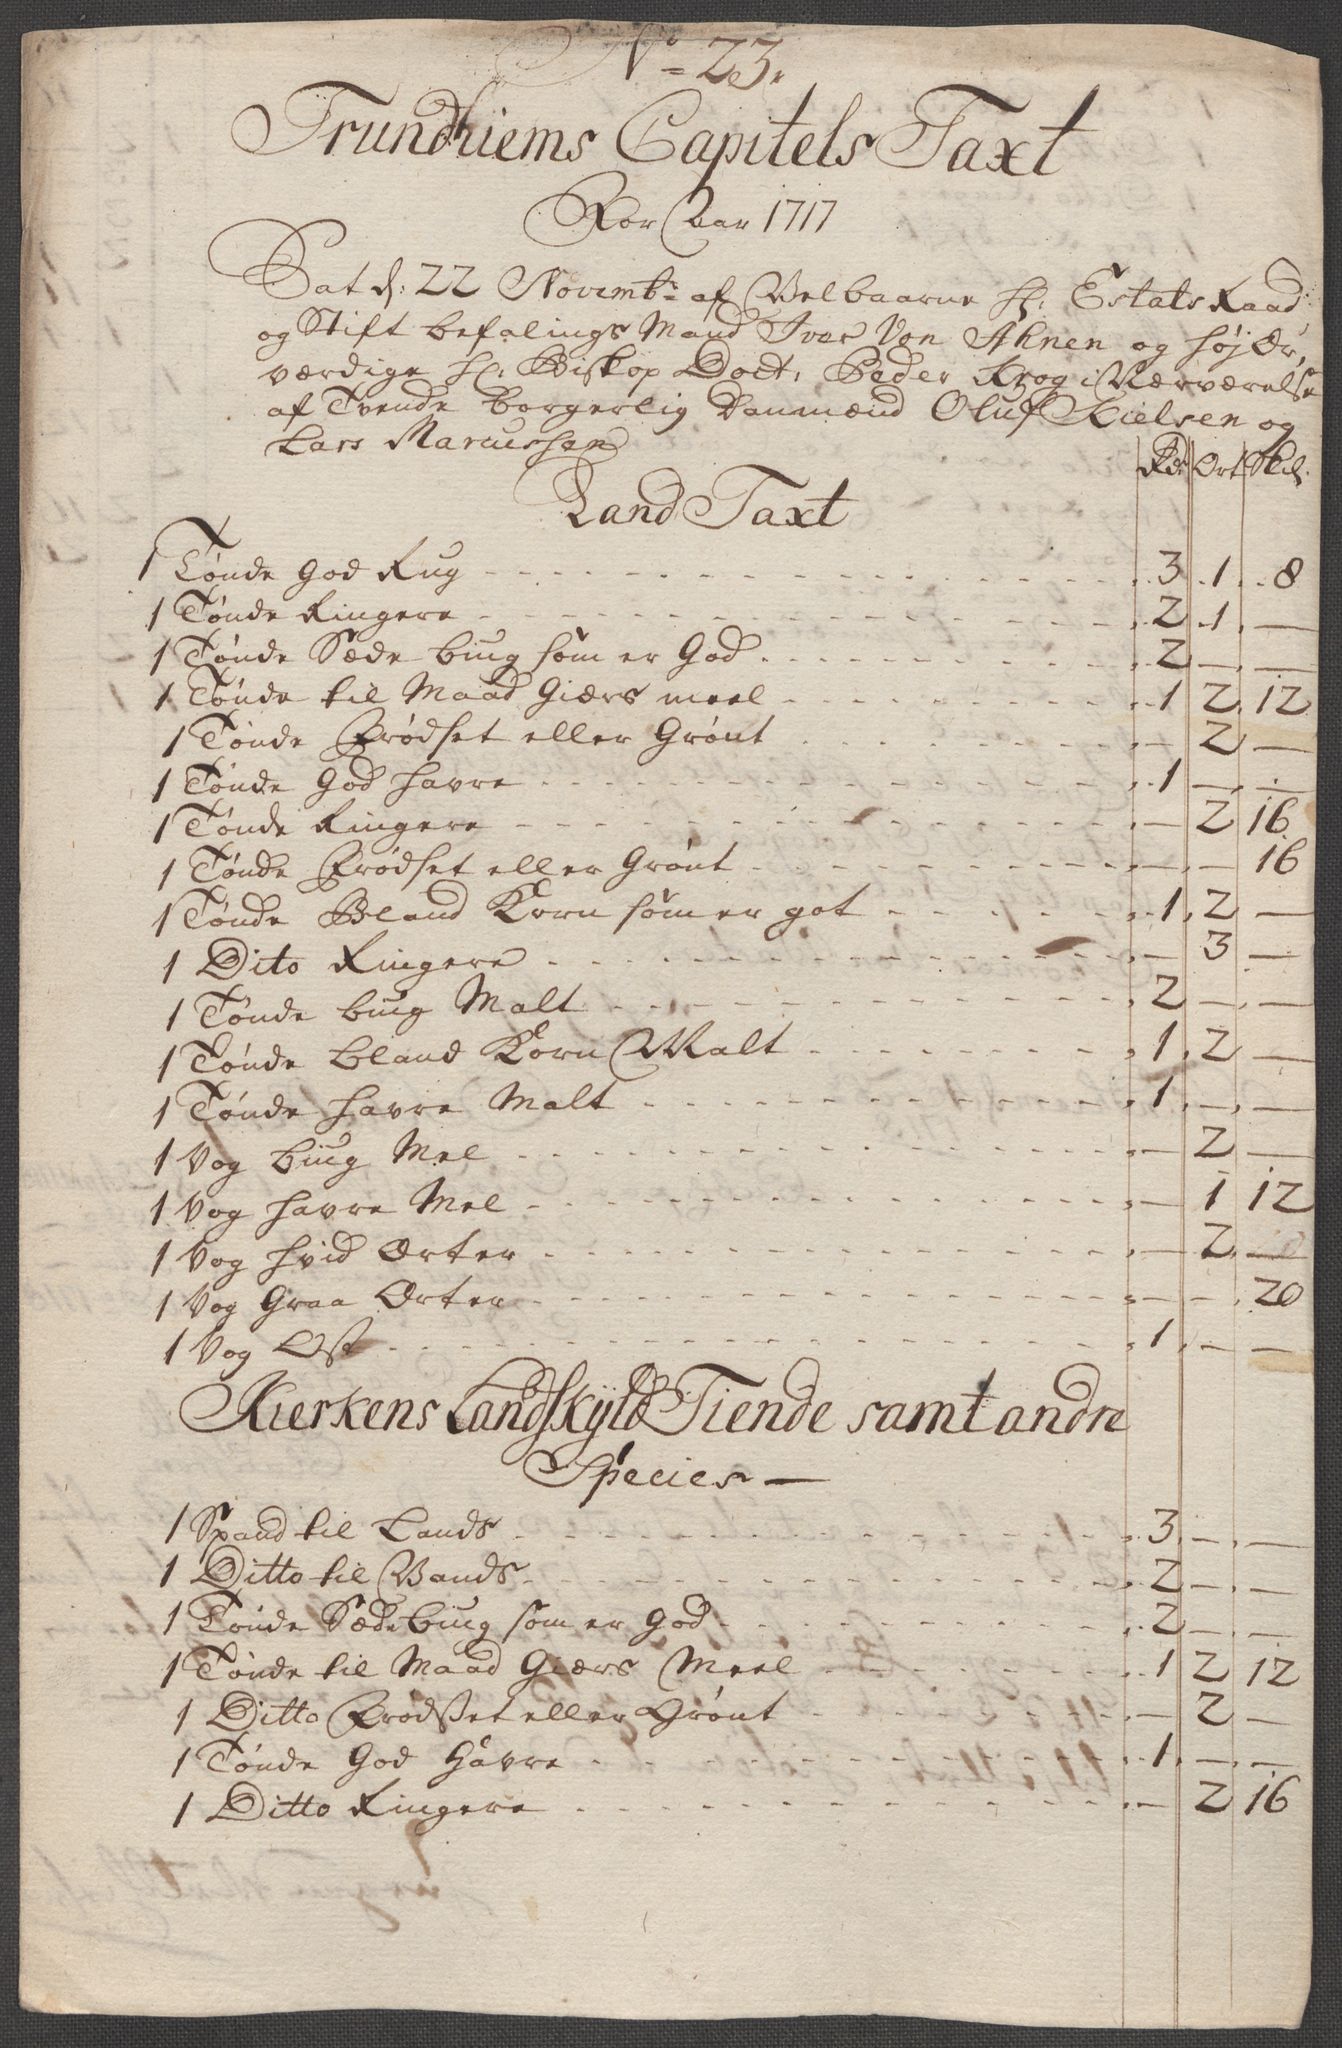 No 23.
Trundhiems Capitels Taxt
For Aar 1717
Sat d: 22 Novembr: af Velbaarne Hr: Estats Raad
og Stift befalings Mand Iver Von Ahnen og høj Ær,
værdige Hr: Biskop Doct, Peder Krog i Nærværelse
af Tvende borgerlig Danmænd Oluf Kielsen og
Lars Marcussen
Rdr Ort Skil:
Land Taxt
1 Tønde God Rug 3 1 8
1 Tønde Ringere 2 1 —
1 Tønde Sæde biug som er God 2 — —
1 Tønde til Maad Giærs meel 1 2 12
1 Tønde Frødset eller Grønt — 2 —
1 Tønde God havre 1 — —
1 Tønde Ringere — 2 16
1 Tønde Frødset eller Grønt — — 16
1 Tønde Bland Korn som er got 1 2 —
1 Dito Ringere — 3 —
1 Tønde biug Malt 2 — —
1 Tønde bland Korn Malt 1 2 —
1 Tønde havre Malt 1 — —
1 Vog biug Mel — 2 —
1 Vog havre Mel — 1 12
1 Vog hvid Erter — 2 —
1 Vog Graa Erter — — 20
1 Vog Ost 1 — —
Kierkens Landskyld Tiende samt andre
Species —
1 Spand til Lands 3 — —
1 Ditto til Vands 2 — —
1 Tønde Sæde biug som er God 2 — —
1 Tønde til Maad Giærs Meel 1 2 12
1 Ditto Frødset eller Grønt — 2 —
1 Tønde God Havre 1 — —
1 Ditto Ringere — 2 16